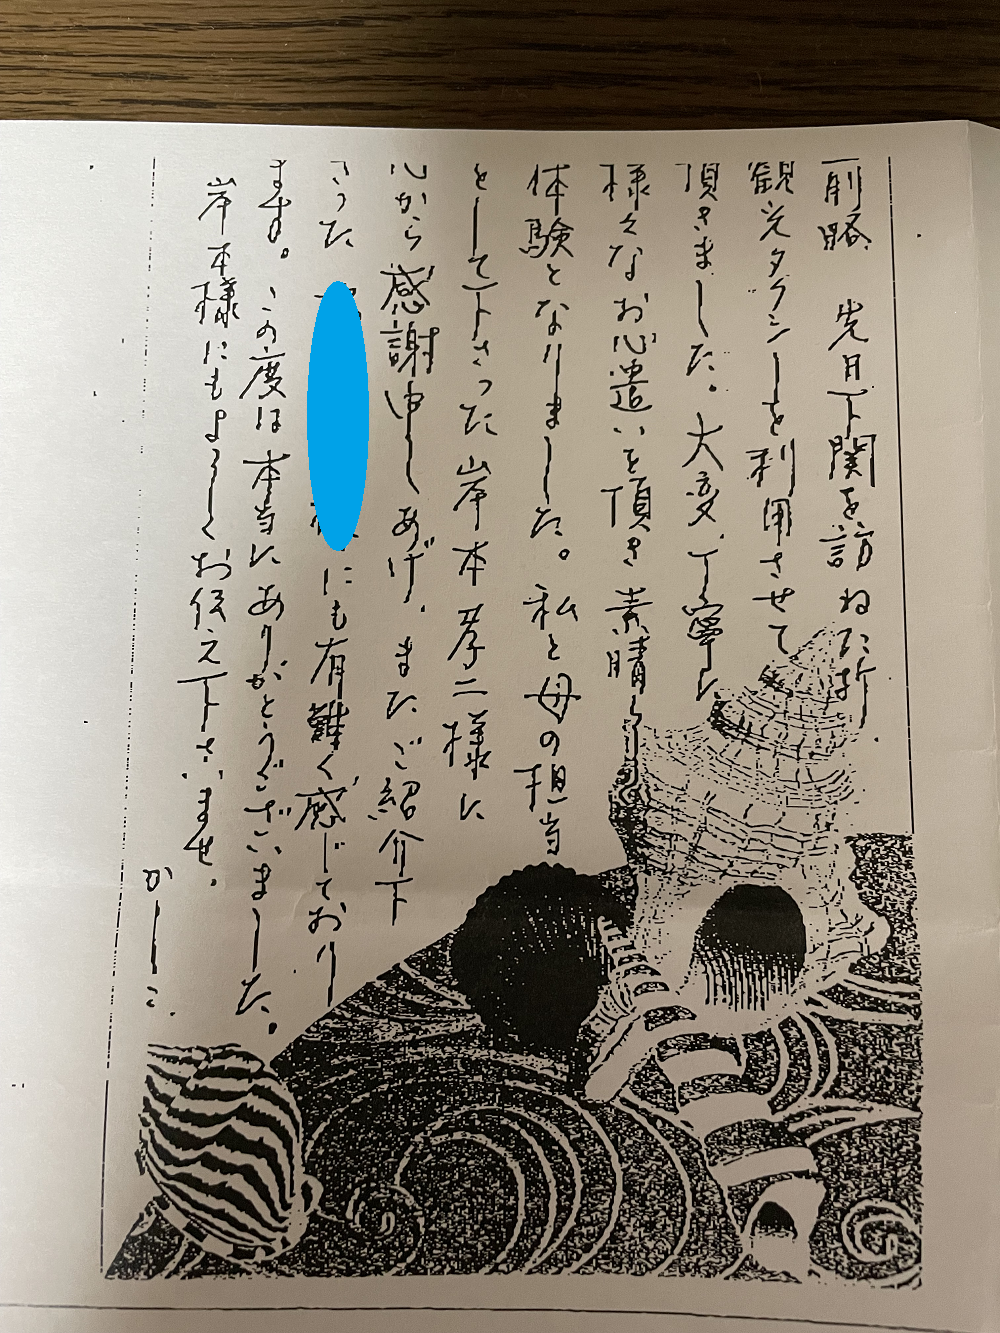 前略 先月下関を訪ねた折
観光タクシーを利用させて
頂きました。大変、丁寧に
様々なお心遣いを頂き素晴らしい
体験となりました。私と母の担当
をして下さった岸本孝二様に
心から感謝申しあげ、またご紹介下
さった
にも有難く感じており
ます。この度は本当にありがとうございました。
岸本様にもよろしくお伝え下さいませ。
かしこ